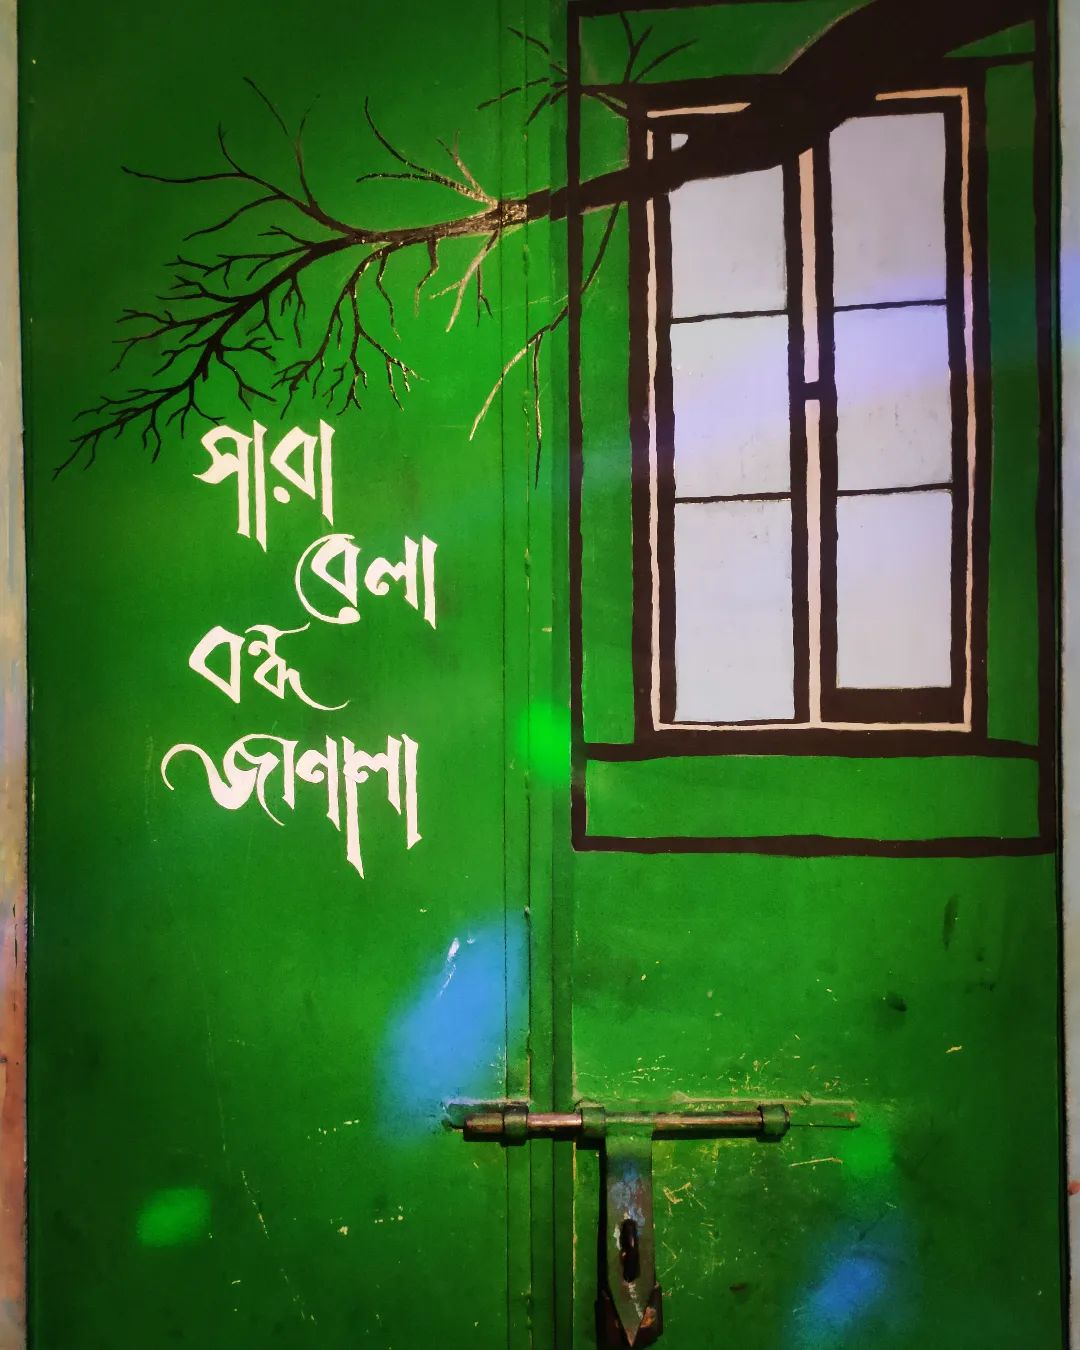 সারা
বেলা
বন্ধ
জানালা